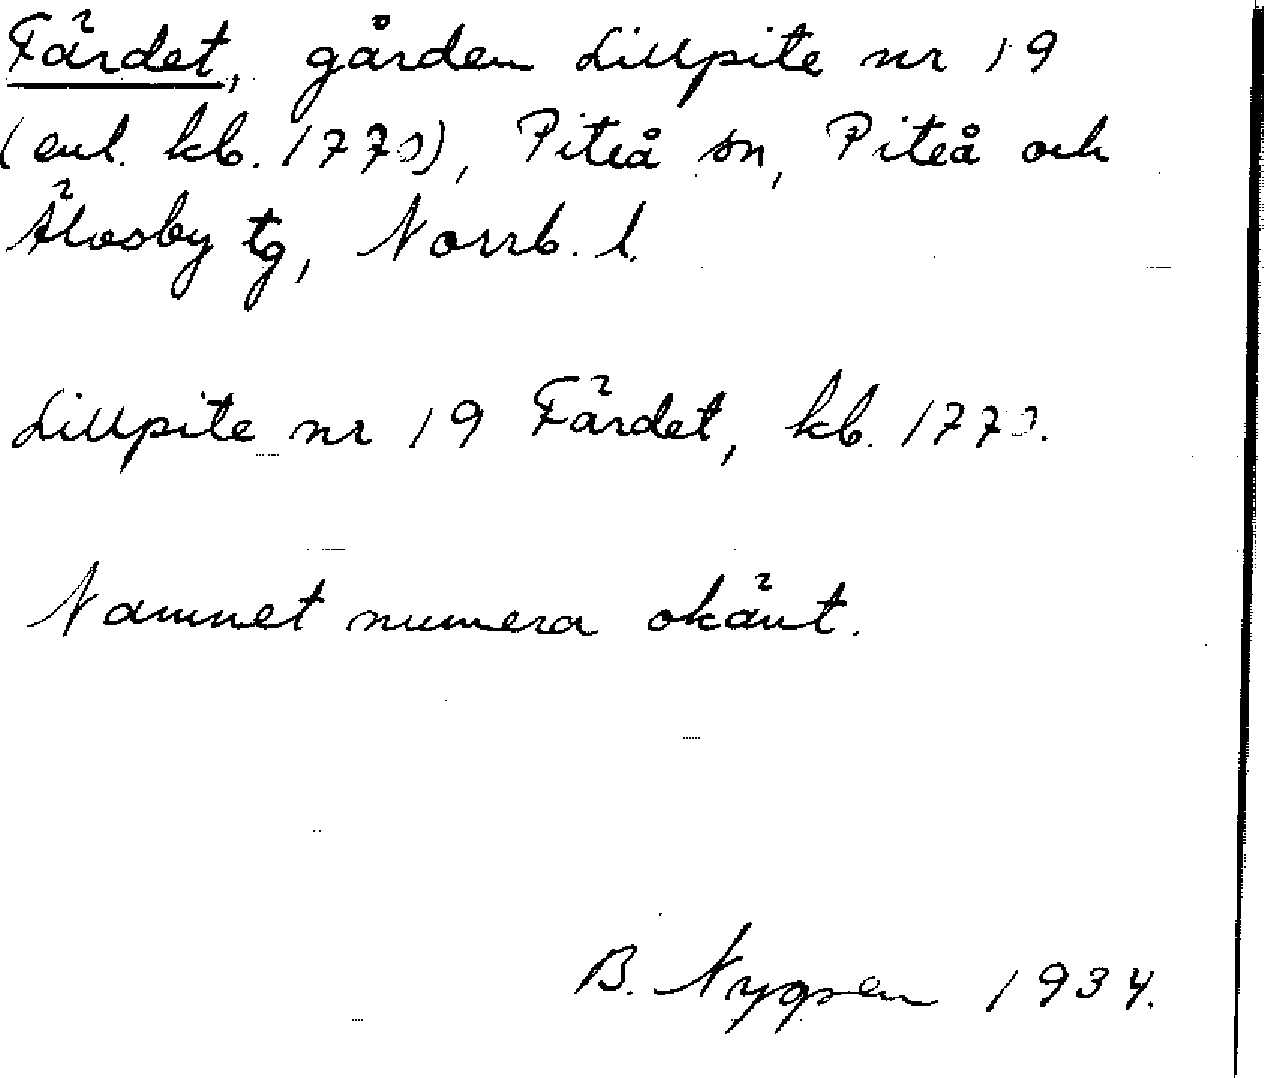 Färdet, gården Lillpite nr 19
(enl. kb. 1773), Piteå sn, Piteå och
Älvsby tg, Norrb. l.
Lillpite nr 19 Färdet, kb. 1773.
Namnet numera okänt.
B. Nygren 1934.